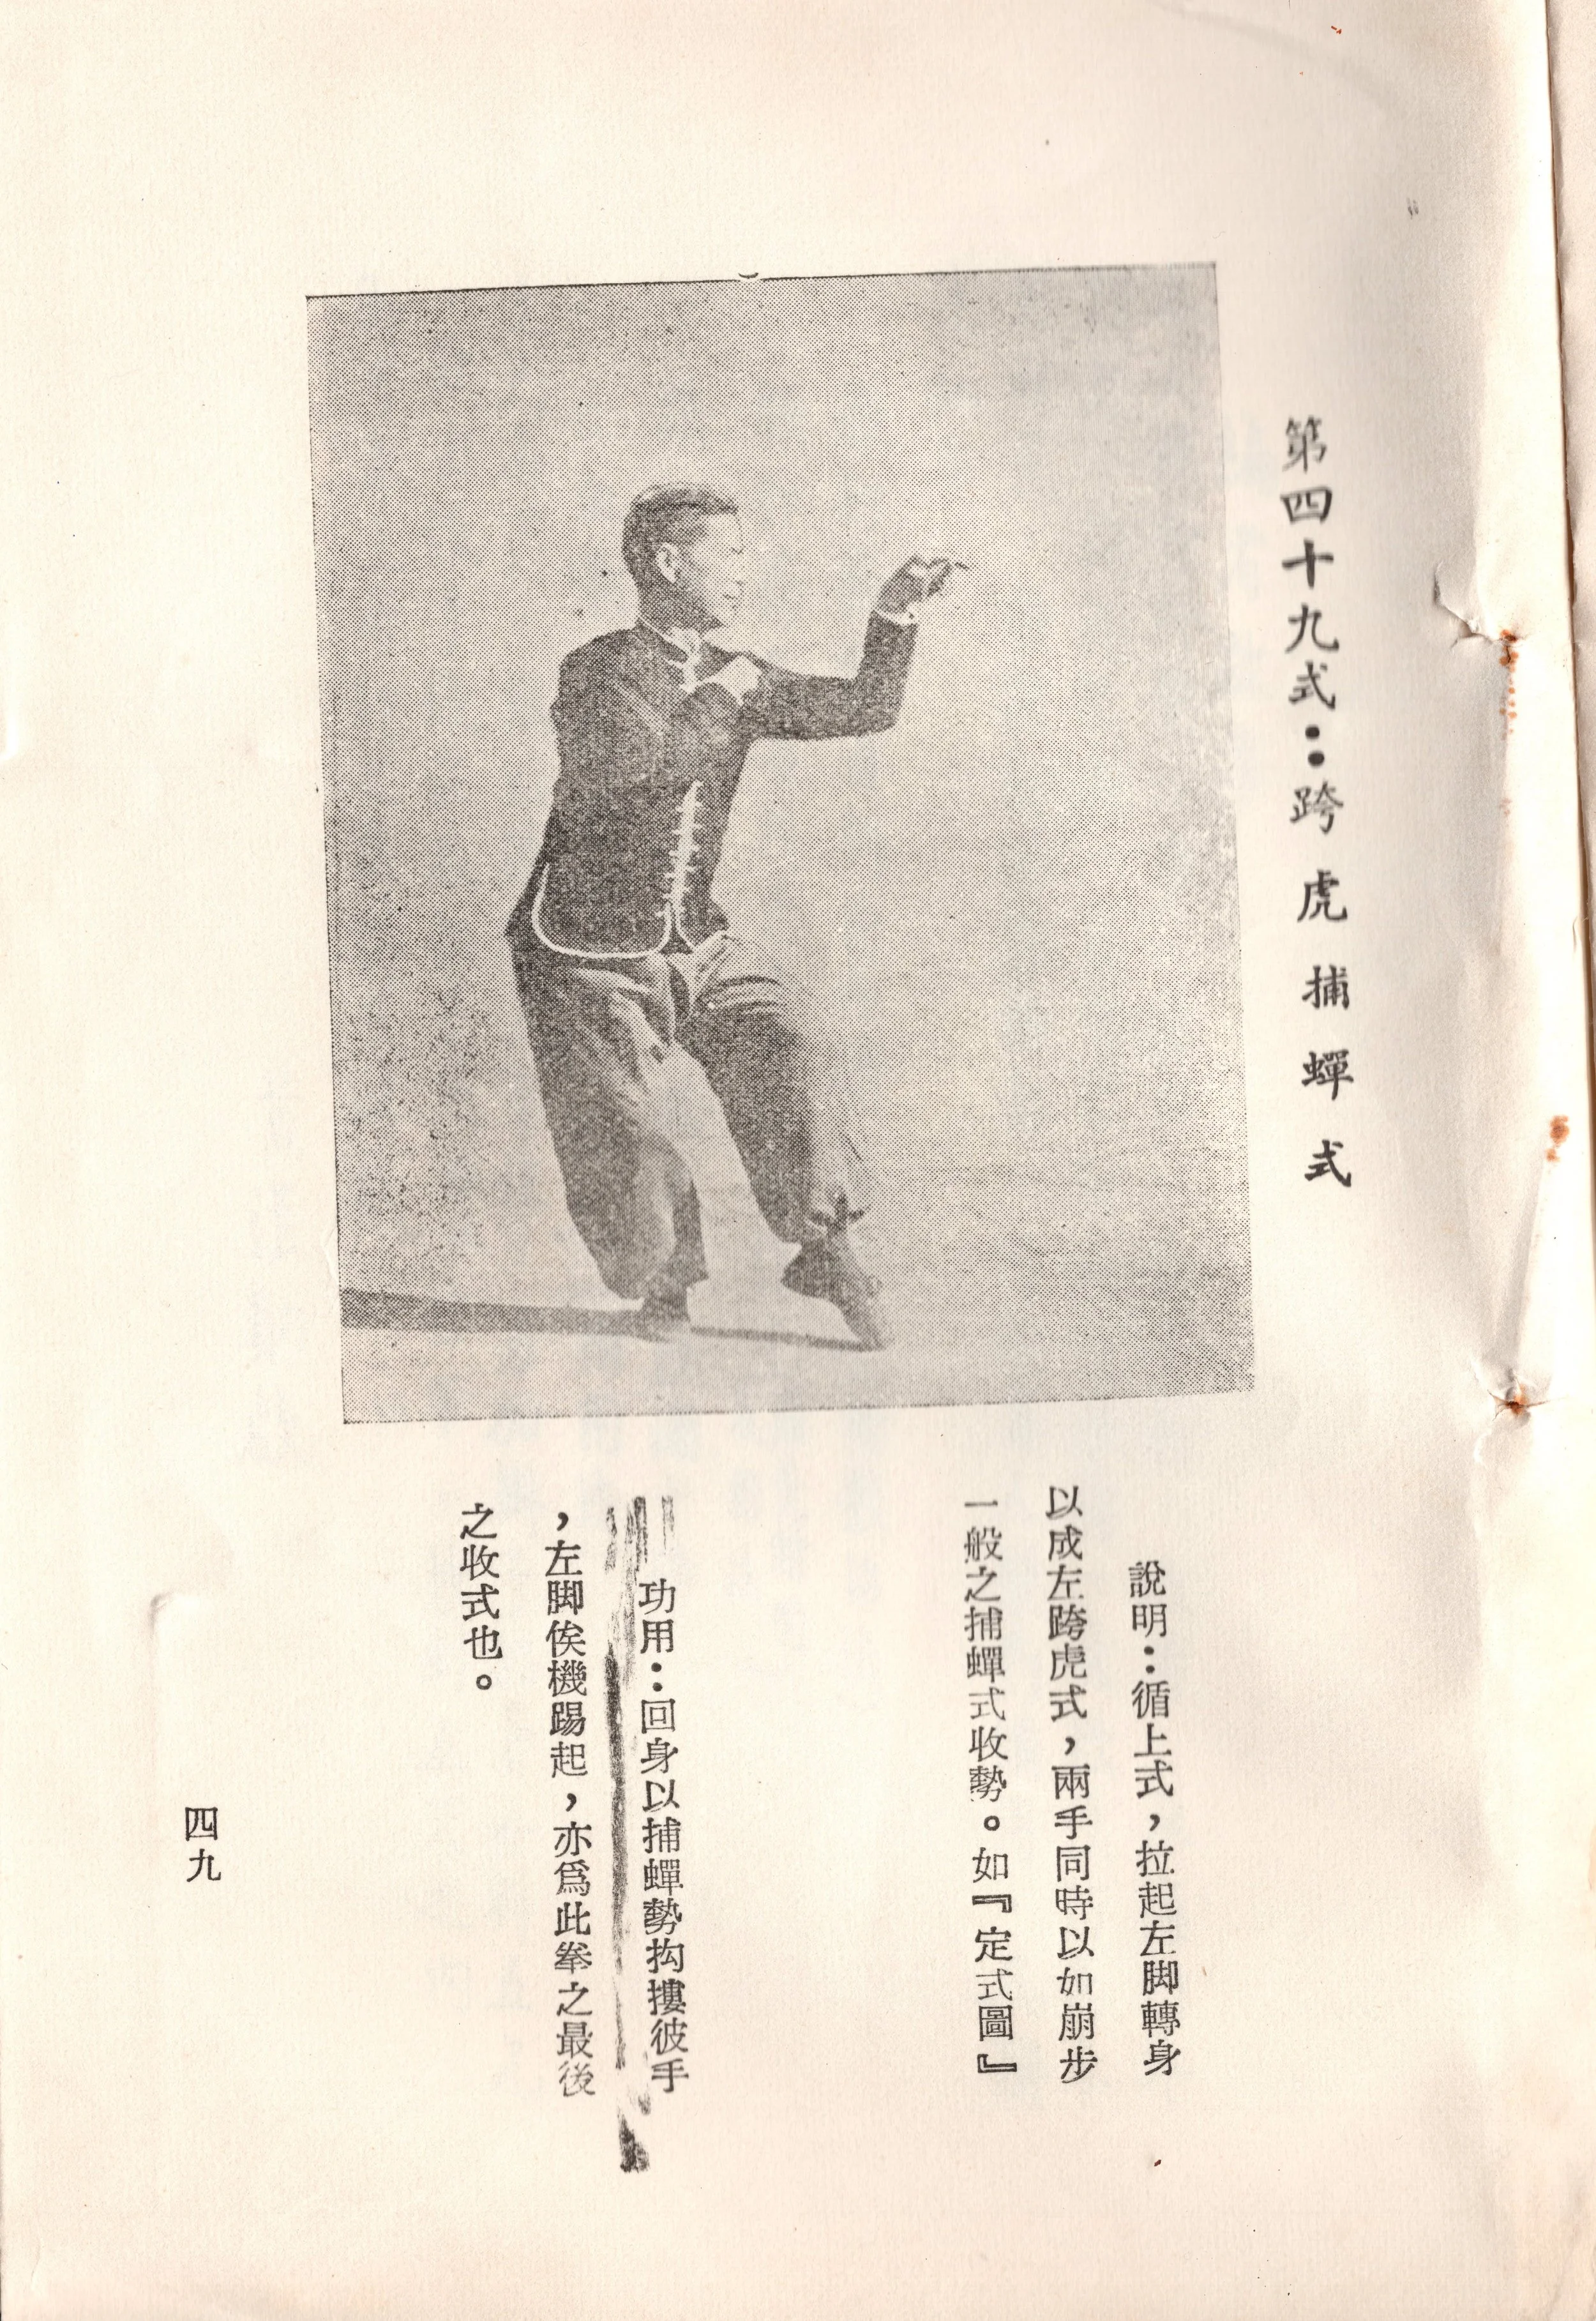 第四十九式：跨虎捕蟬式
說明：循上式，拉起左脚轉身
以成左跨虎式，兩手同時以如崩步
一般之捕蟬式收勢。如『定式圖』
功用：回身以捕蟬勢抅摟彼手
，左脚俟機踢起，亦爲此拳之最後
之收式也。
四九